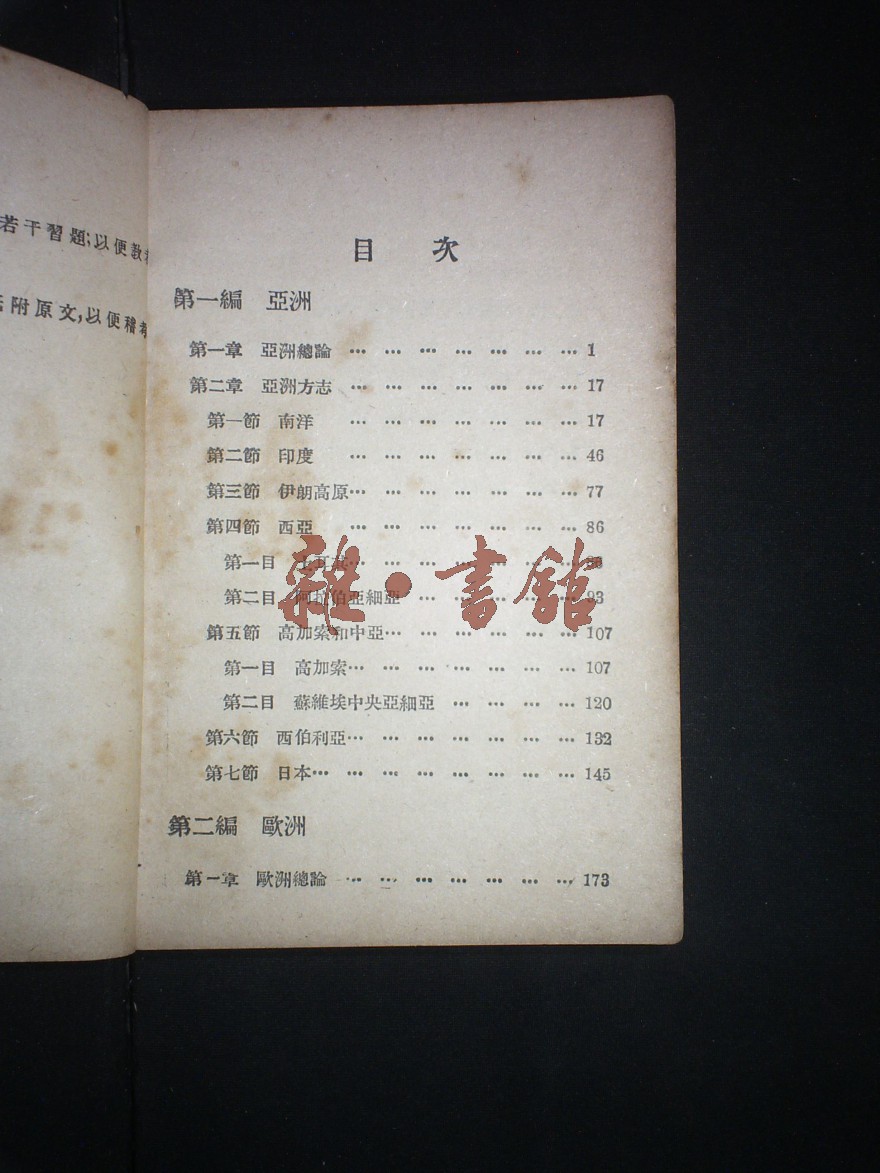 若干習題;以便教
附原文,以便稽考
目 次
第一編 亞洲
第一章 亞洲總論 … … … … … … … 1
第二章 亞洲方志 … … … … … … … 17
第一節 南洋 … … … … … … … 17
第二節 印度 … … … … … … … 46
第三節 伊朗高原… … … … … … … 77
第四節 西亞 … … … … … … … 86
第一目 土耳其… … … … … … …
第二目 阿拉伯亞細亞 … … … … … 93
第五節 高加索和中亞… … … … … … 107
第一目 高加索… … … … … … … 107
第二目 蘇維埃中央亞細亞 … … … … 120
第六節 西伯利亞… … … … … … … 132
第七節 日本… … … … … … … … 145
第二編 歐洲
第一章 歐洲總論 … … … … … … … 173
雜·書館